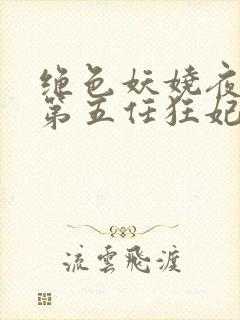 绝色妖娆夜
第五任狂妃
流雲飛渡